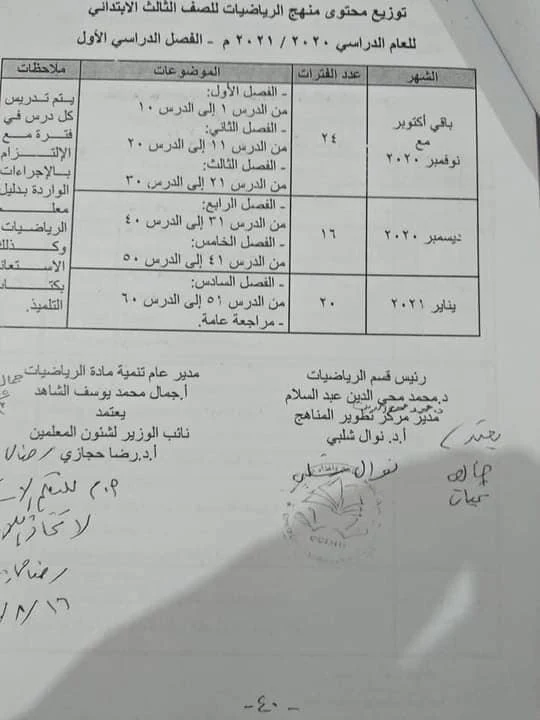 توزيع محتوى منهج الرياضيات للصف الثالث الابتدائي
للعام الدراسي ٢٠٢٠ / ٢٠٢١ م - الفصل الدراسي الأول
الشهر
عدد الفترات
الموضوعات
ملاحظات
باقي أكتوبر
مع
نوفمبر ٢٠٢٠
٢٤
- الفصل الأول:
من الدرس ١ إلى الدرس ١٠
- الفصل الثاني:
من الدرس ١١ إلى الدرس ٢٠
- الفصل الثالث:
من الدرس ٢١ إلى الدرس ٣٠
ديسمبر ٢٠٢٠
١٦
- الفصل الرابع:
من الدرس ٣١ إلى الدرس ٤٠
- الفصل الخامس:
من الدرس ٤١ إلى الدرس ٥٠
يناير ٢٠٢١
٢٠
- الفصل السادس:
من الدرس ٥١ إلى الدرس ٦٠
- مراجعة عامة.
يتم تدريس
كل درس في
فترة مع
الإلتزام
بالإجراءات
الواردة بدليل
الرياضيات
التلميذ.
رئيس قسم الرياضيات
د.محمد محي الدين عبد السلام
مدير مركز تطوير المناهج
أ.د. نوال شلبي
مدير عام تنمية مادة الرياضيات
أ.جمال محمد يوسف الشاهد
يعتمد
نائب الوزير لشئون المعلمين
أ.د.رضا حجازي
نوال شلبي
- ٤٠ -